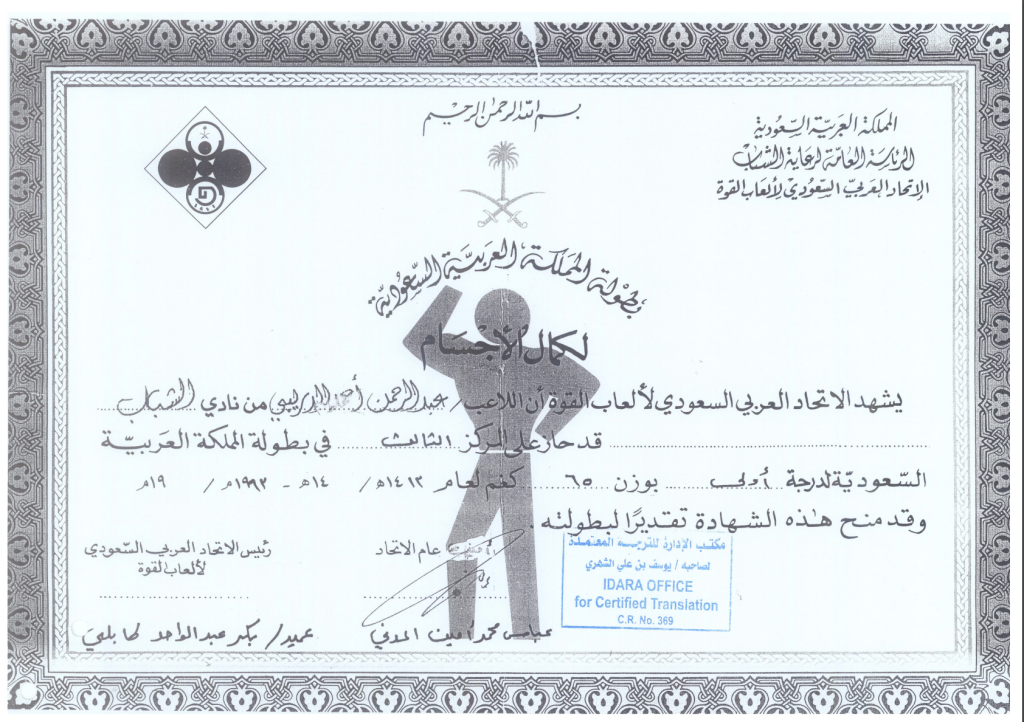 بسم الله الرحمن الرحيم
المملكة العربية السعودية
الرئاسة العامة لرعاية الشباب
الإتحاد العربي السعودي لألعاب القوة
بطولة المملكة العربية السعودية
لكمال الأجسام
يشهد الاتحاد العربي السعودي لألعاب القوة أن اللاعب / عبد الرحمن أحمد من نادي الشباب
قد حاز على المركز الثالث في بطولة المملكة العربية
السعودية لدرجة أولى بوزن ٦٥ كغم لعام ١٤١٣هـ / ١٤هـ - ١٩٩٣م / ١٩م
وقد منح هذه الشهادة تقديرًا لبطولته .
أمين عام الاتحاد
رئيس الاتحاد العربي السعودي
لألعاب القوة
عباس محمد أمين
عميد / بكر عبد الواحد
مكتب الإدارة للترجمة المعتمدة
لصاحبه / يوسف بن علي الشهري
IDARA OFFICE
for Certified Translation
C.R. No. 369